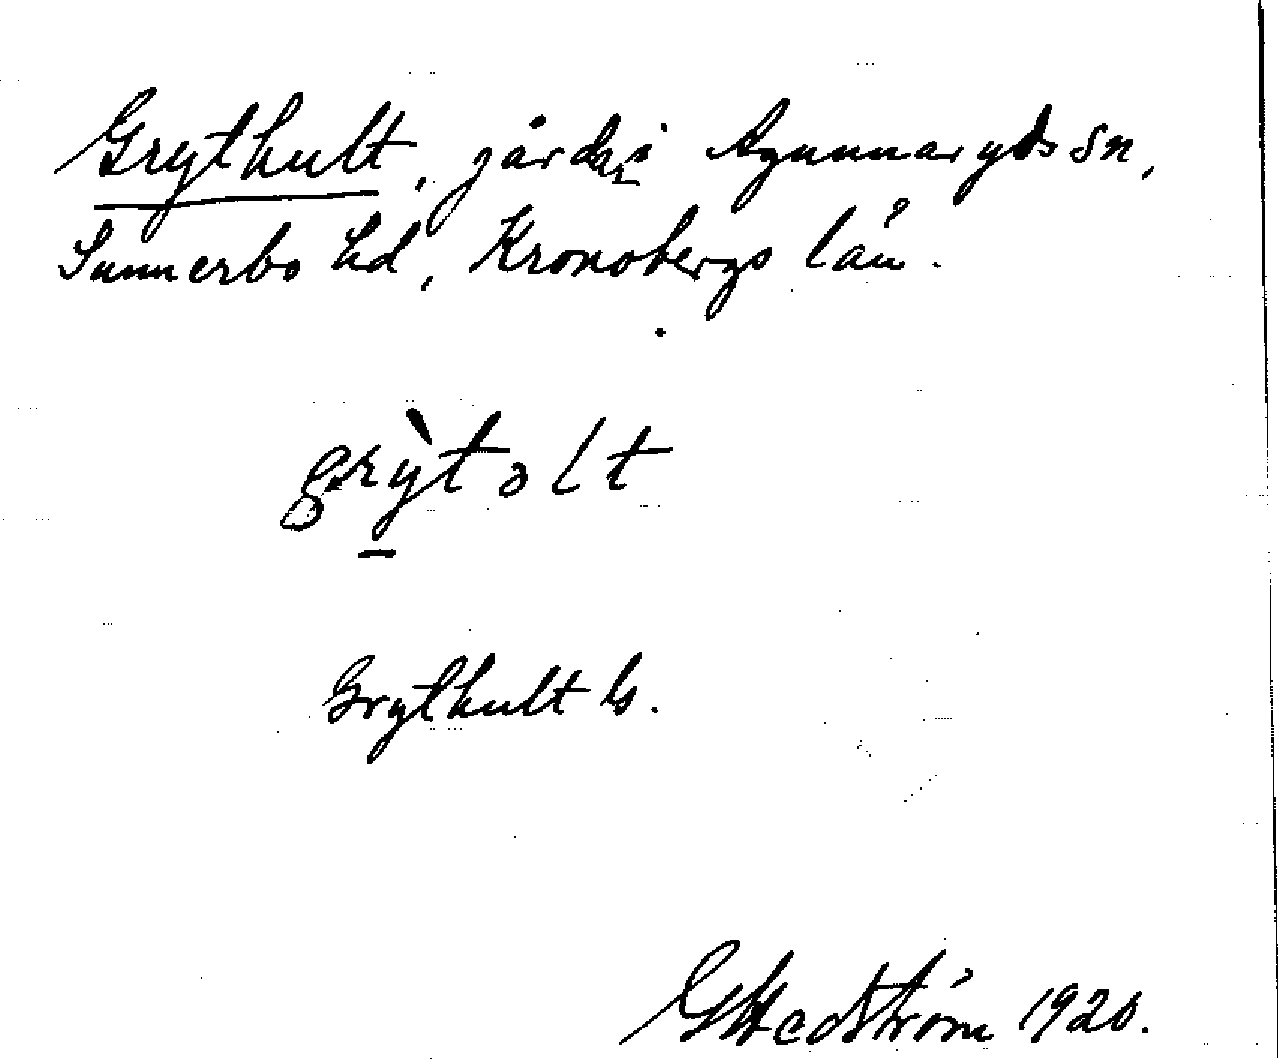 Grythult, gård i Agunnaryds sn,
Sunnerbo hd, Kronobergs län.
grỳtəlt
Grythult ls.
G Hedström 1920.